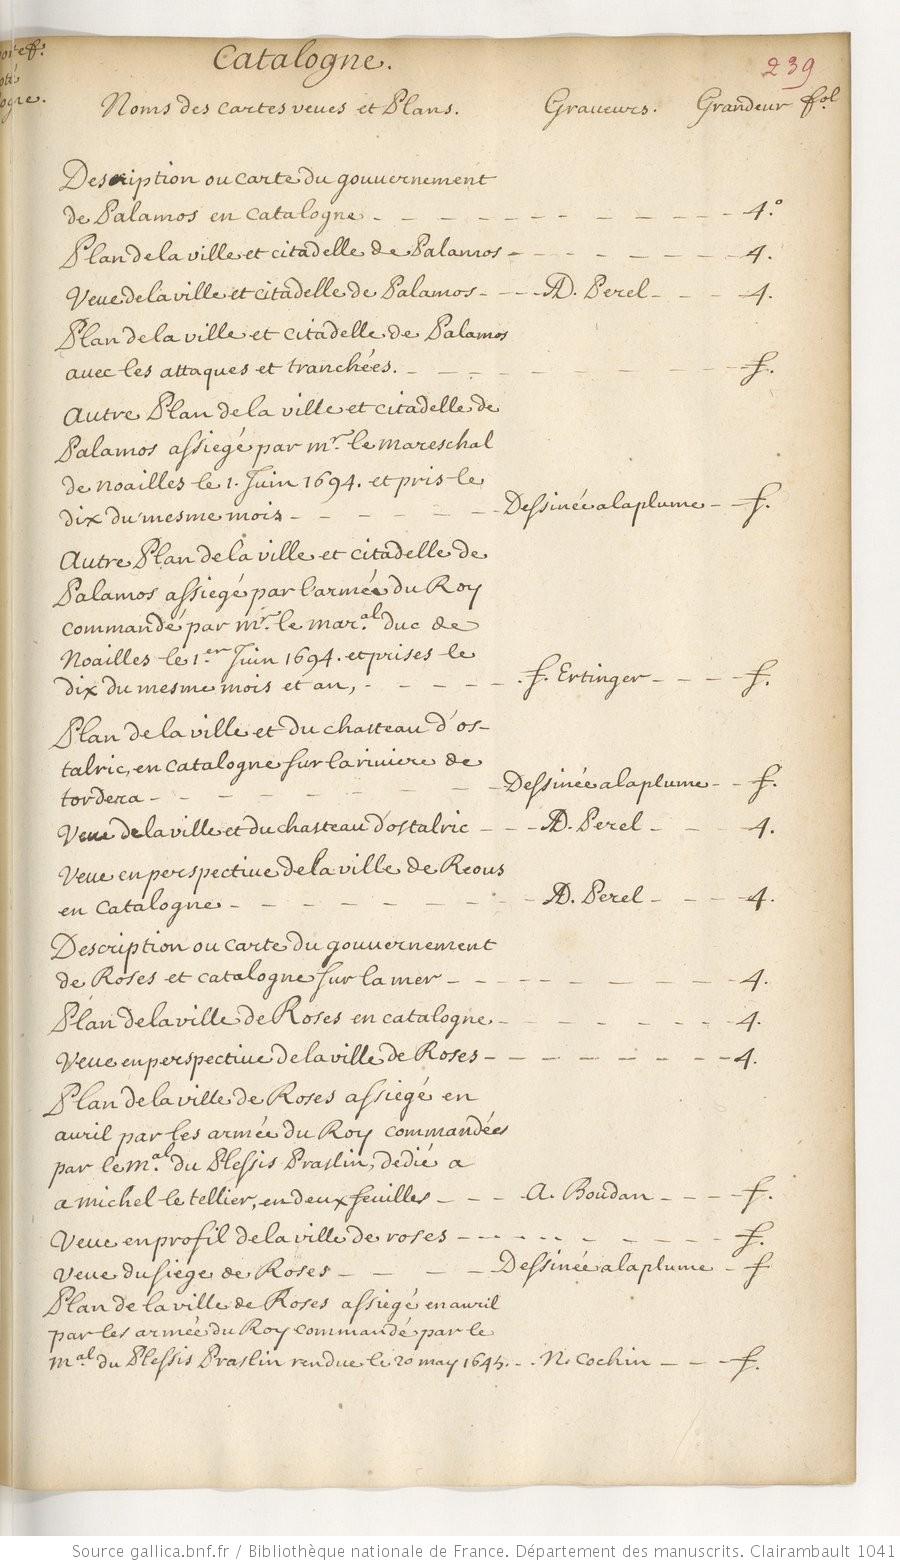 Catalogne.
239
Noms des cartes veues et Plans. Graueurs. Grandeur fol
Description ou carte du gouuernement
de Palamos en Catalogne - - - - - - - - - - 4.º
Plan de la ville et citadelle de Palamos - - - - - - - 4.
Veue de la ville et citadelle de Palamos - - - AD. Perel - - - 4.
Plan de la ville et citadelle de Palamos
auec les attaques et tranchées. - - - - - - - - - - f.
Autre Plan de la ville et citadelle de
Palamos assiegé par mr. le mareschal
de noailles le 1. Juin 1694. et pris le
dix du mesme mois - - - - - - Dessinée a la plume - f.
Autre Plan de la ville et citadelle de
Palamos assiegé par l'armée du Roy
commandé par mr. le mar.al duc de
Noailles le 1.er Juin 1694. et prises le
dix du mesme mois et an, - - - - - f. Ertinger - - - f.
Plan de la ville et du chasteau d'os-
talric, en catalogne sur la riuiere de
tordera - - - - - - - - - Dessinée a la plume - - f.
Veue de la ville et du chasteau d'ostalric - - - AD. Perel - - 4.
Veue en perspectiue de la ville de Reous
en Catalogne - - - - - - - - - AD. Perel - - - 4.
Description ou carte du gouuernement
de Roses et catalogne sur la mer - - - - - - - - 4.
Plan de la ville de Roses en catalogne - - - - - - - 4.
Veue en perspectiue de la ville de Roses - - - - - - - - 4.
Plan de la ville de Roses assiegé en
auril par les armée du Roy commandées
par le m.al du Plessis Praslin, dedié a
a michel le tellier, en deux feuilles - - - A. Boudan - - - f.
Veue en profil de la ville de roses - - - - - - - - - f.
Veue du siege de Roses - - - - Dessinée a la plume - f
Plan de la ville de Roses assiegé en auril
par les armée du Roy commandé par le
m.al du Plessis Praslin rendue le 20 may 1645. - - N. Cochin - - - f.
Source gallica.bnf.fr / Bibliothèque nationale de France. Département des manuscrits. Clairambault 1041